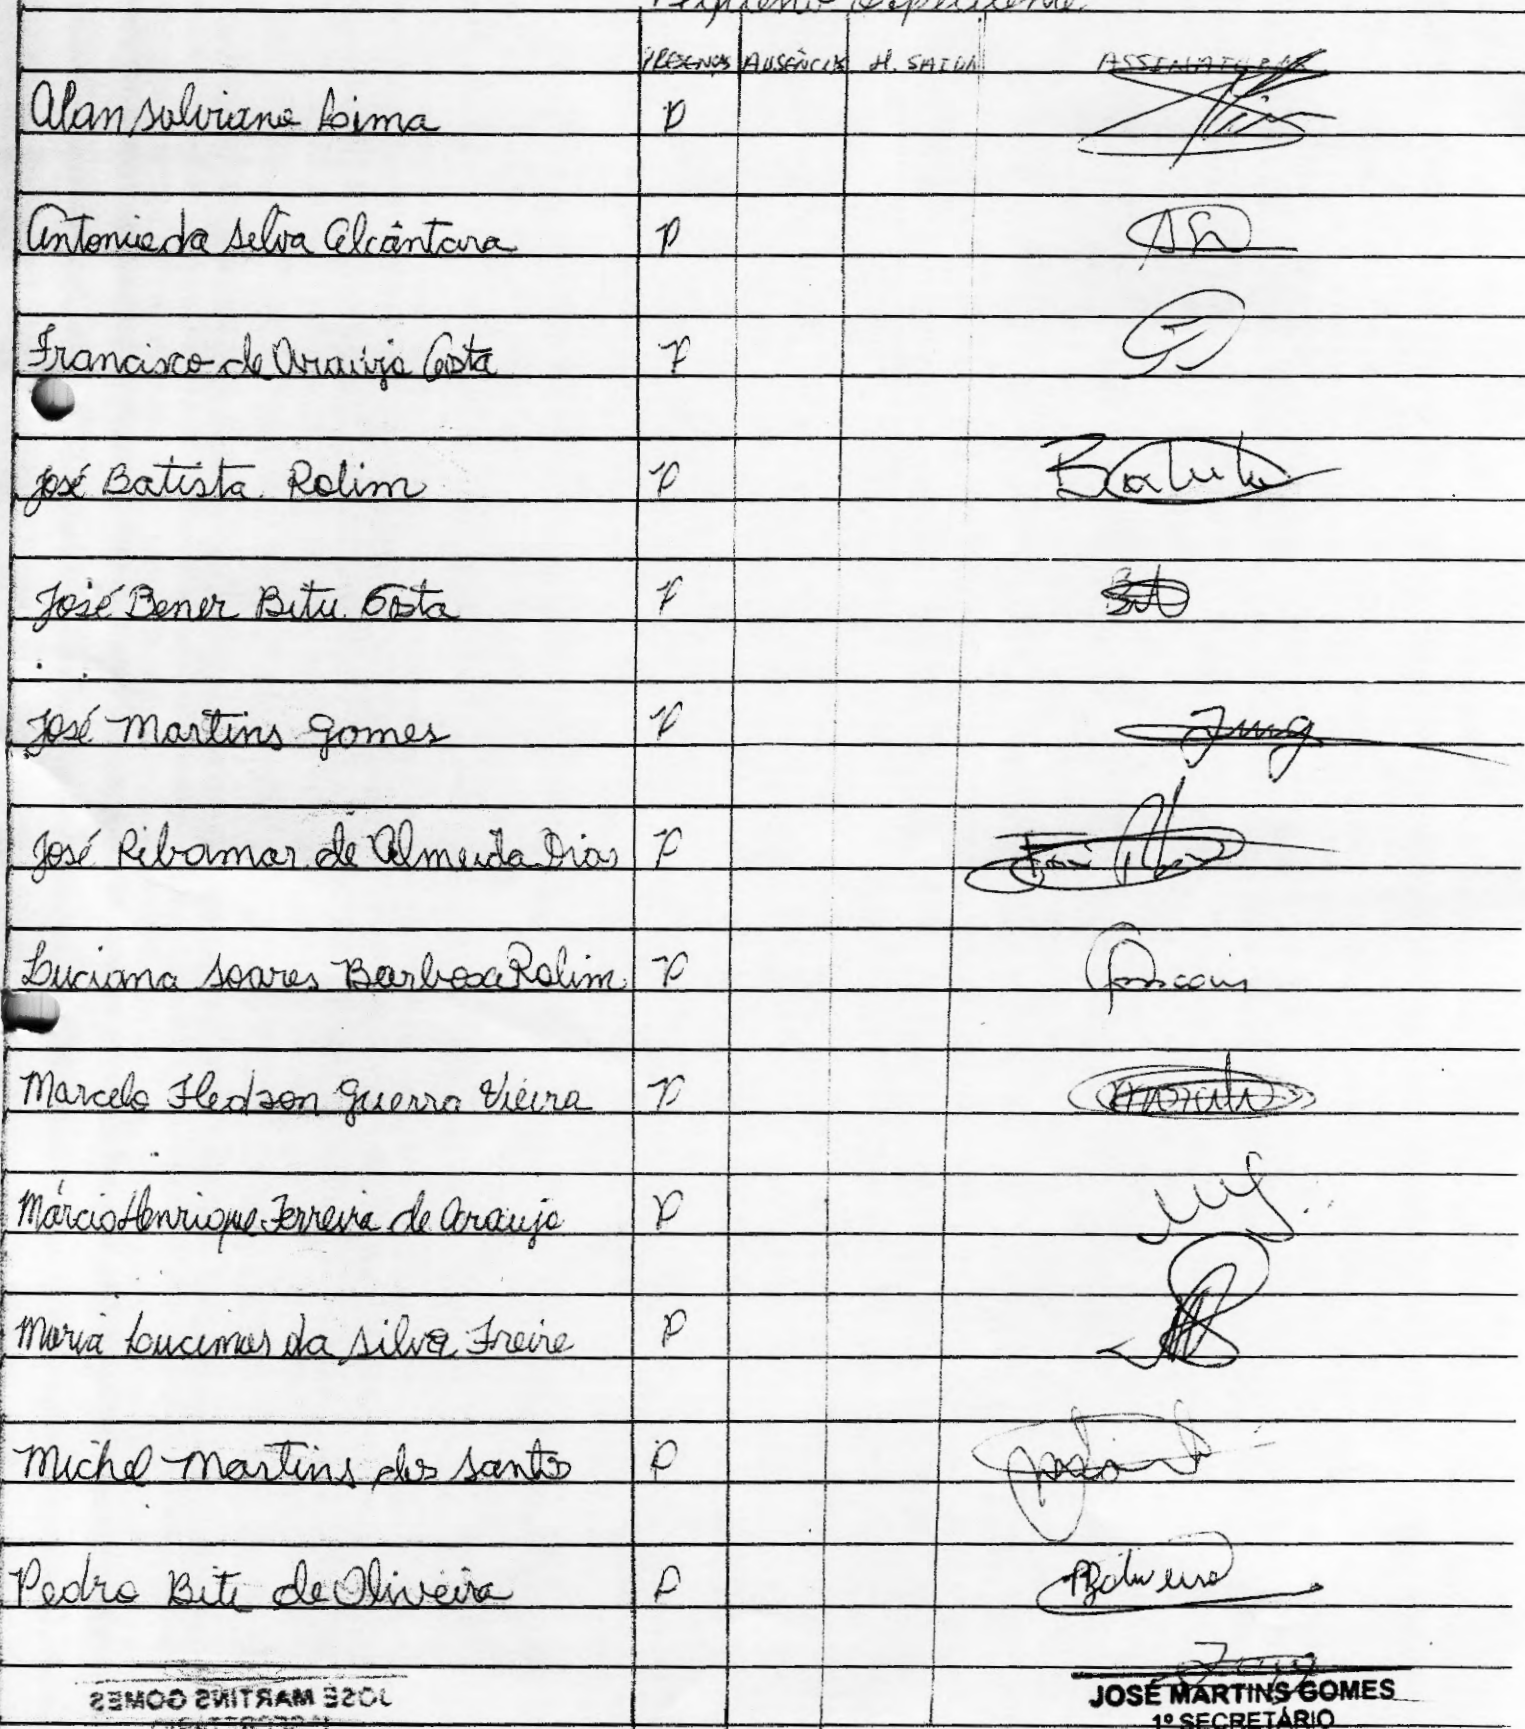 Pequeno Expediente
PRESENÇAS AUSÊNCIAS H. SAIDA ASSINATURAS
Alan Salviano Lima P
Antonio da Silva Alcântara P
Francisco de Araújo Costa P
José Batista Rolim P Batista
José Bener Bitu Costa P Bitu
José Martins Gomes P Jmg
José Ribamar de Almeida Dias P
Luciana Soares Barbosa Rolim P
Marcelo Fledson Guerra Vieira P Marcelo
Márcio Henrique Ferreira de Araujo P
Maria Lucimar da Silva Freire P
Michel Martins dos Santos P
Pedro Bitu de Oliveira P
JOSÉ MARTINS GOMES JOSÉ MARTINS GOMES
1º SECRETÁRIO